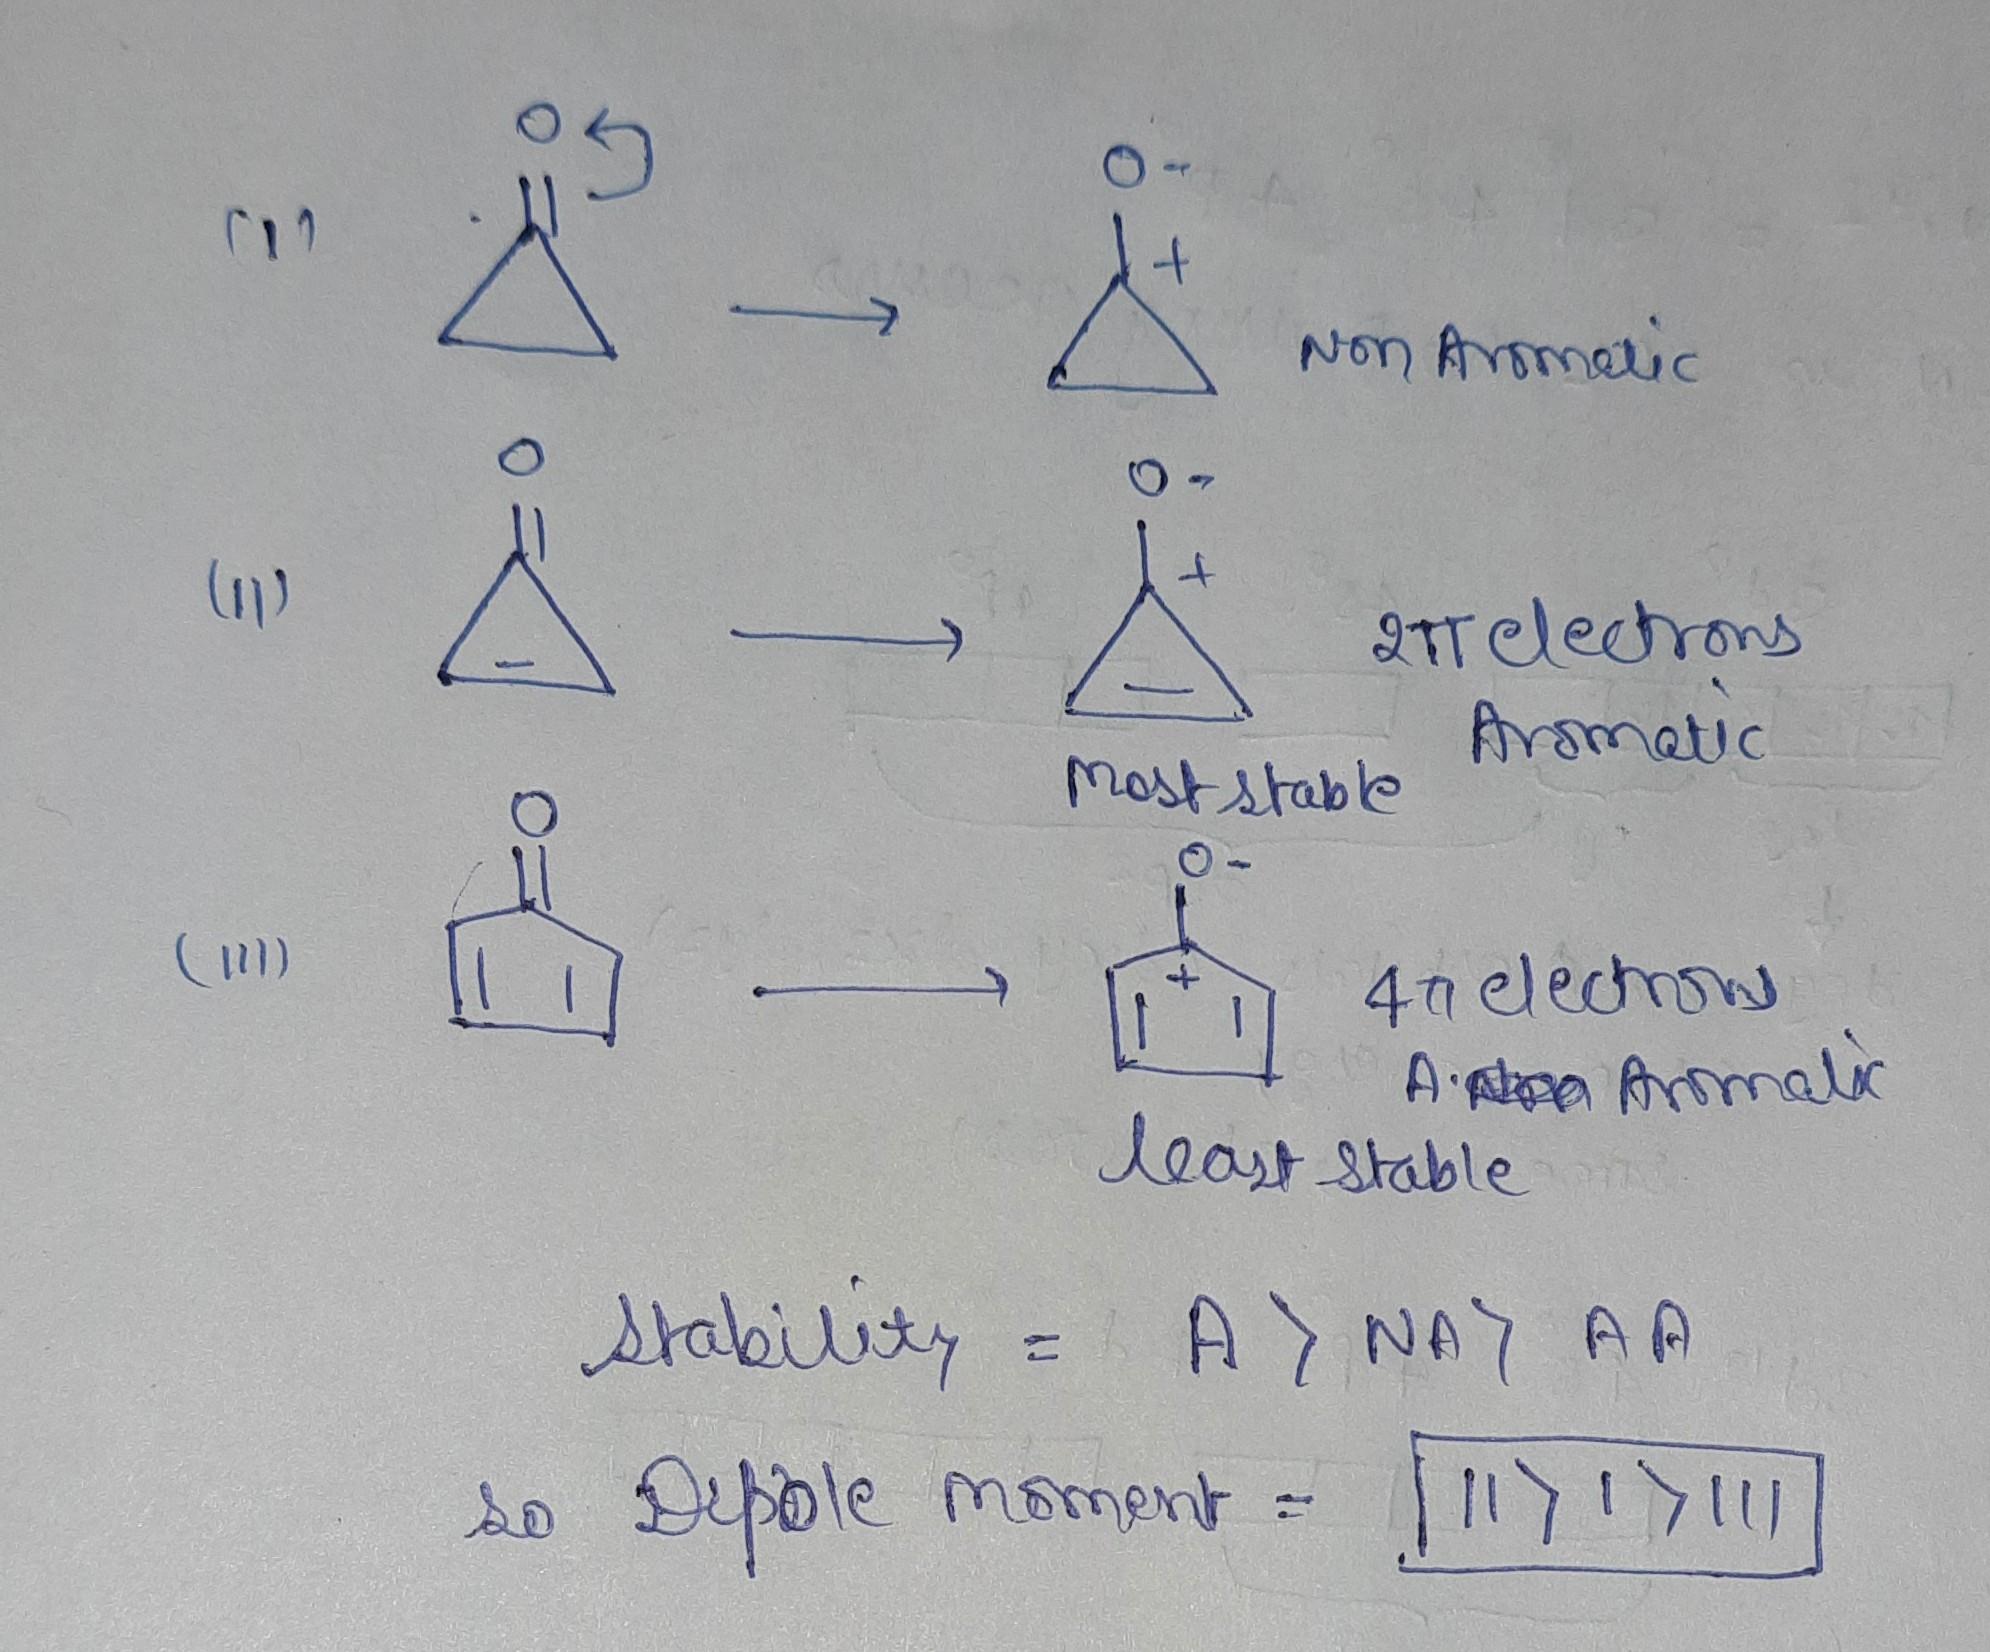 O
O-
(I)
+
Non Aromatic
O
O-
(II)
+
2π electrons
Aromatic
Most stable
O
O-
(III)
+
4π electrons
A. Aromatic
least stable
Stability = A > NA > AA
so Dipole moment = II > I > III